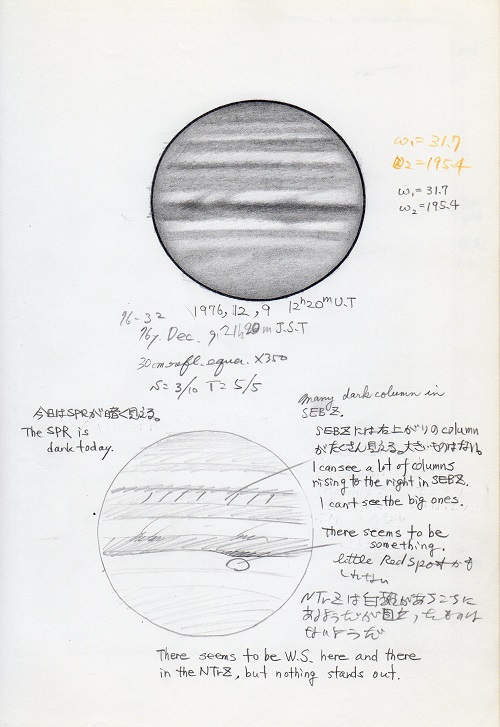 ω₁=31.7
ω₂=195.4
ω₁=31.7
ω₂=195.4
76-32 1976, 12, 9 12ʰ20ᵐU.T
76y. Dec. 9, 21ʰ20ᵐ J.S.T
30cm refl. equa. ×350
S=3/10 T=5/5
many dark column in
SEBZ.
今日はSPRが暗く見える。
The SPR is
dark today.
SEBZには右上がりのcolumn
がたくさん見える。大きいものはない。
I can see a lot of columns
rising to the right in SEBZ.
I can't see the big ones.
There seems to be
something.
little Red Spotかも
しれない
NTrZは白斑があちこちに
あるようだが目立ったものは
ないようだ
There seems to be W.S. here and there
in the NTrZ, but nothing stands out.